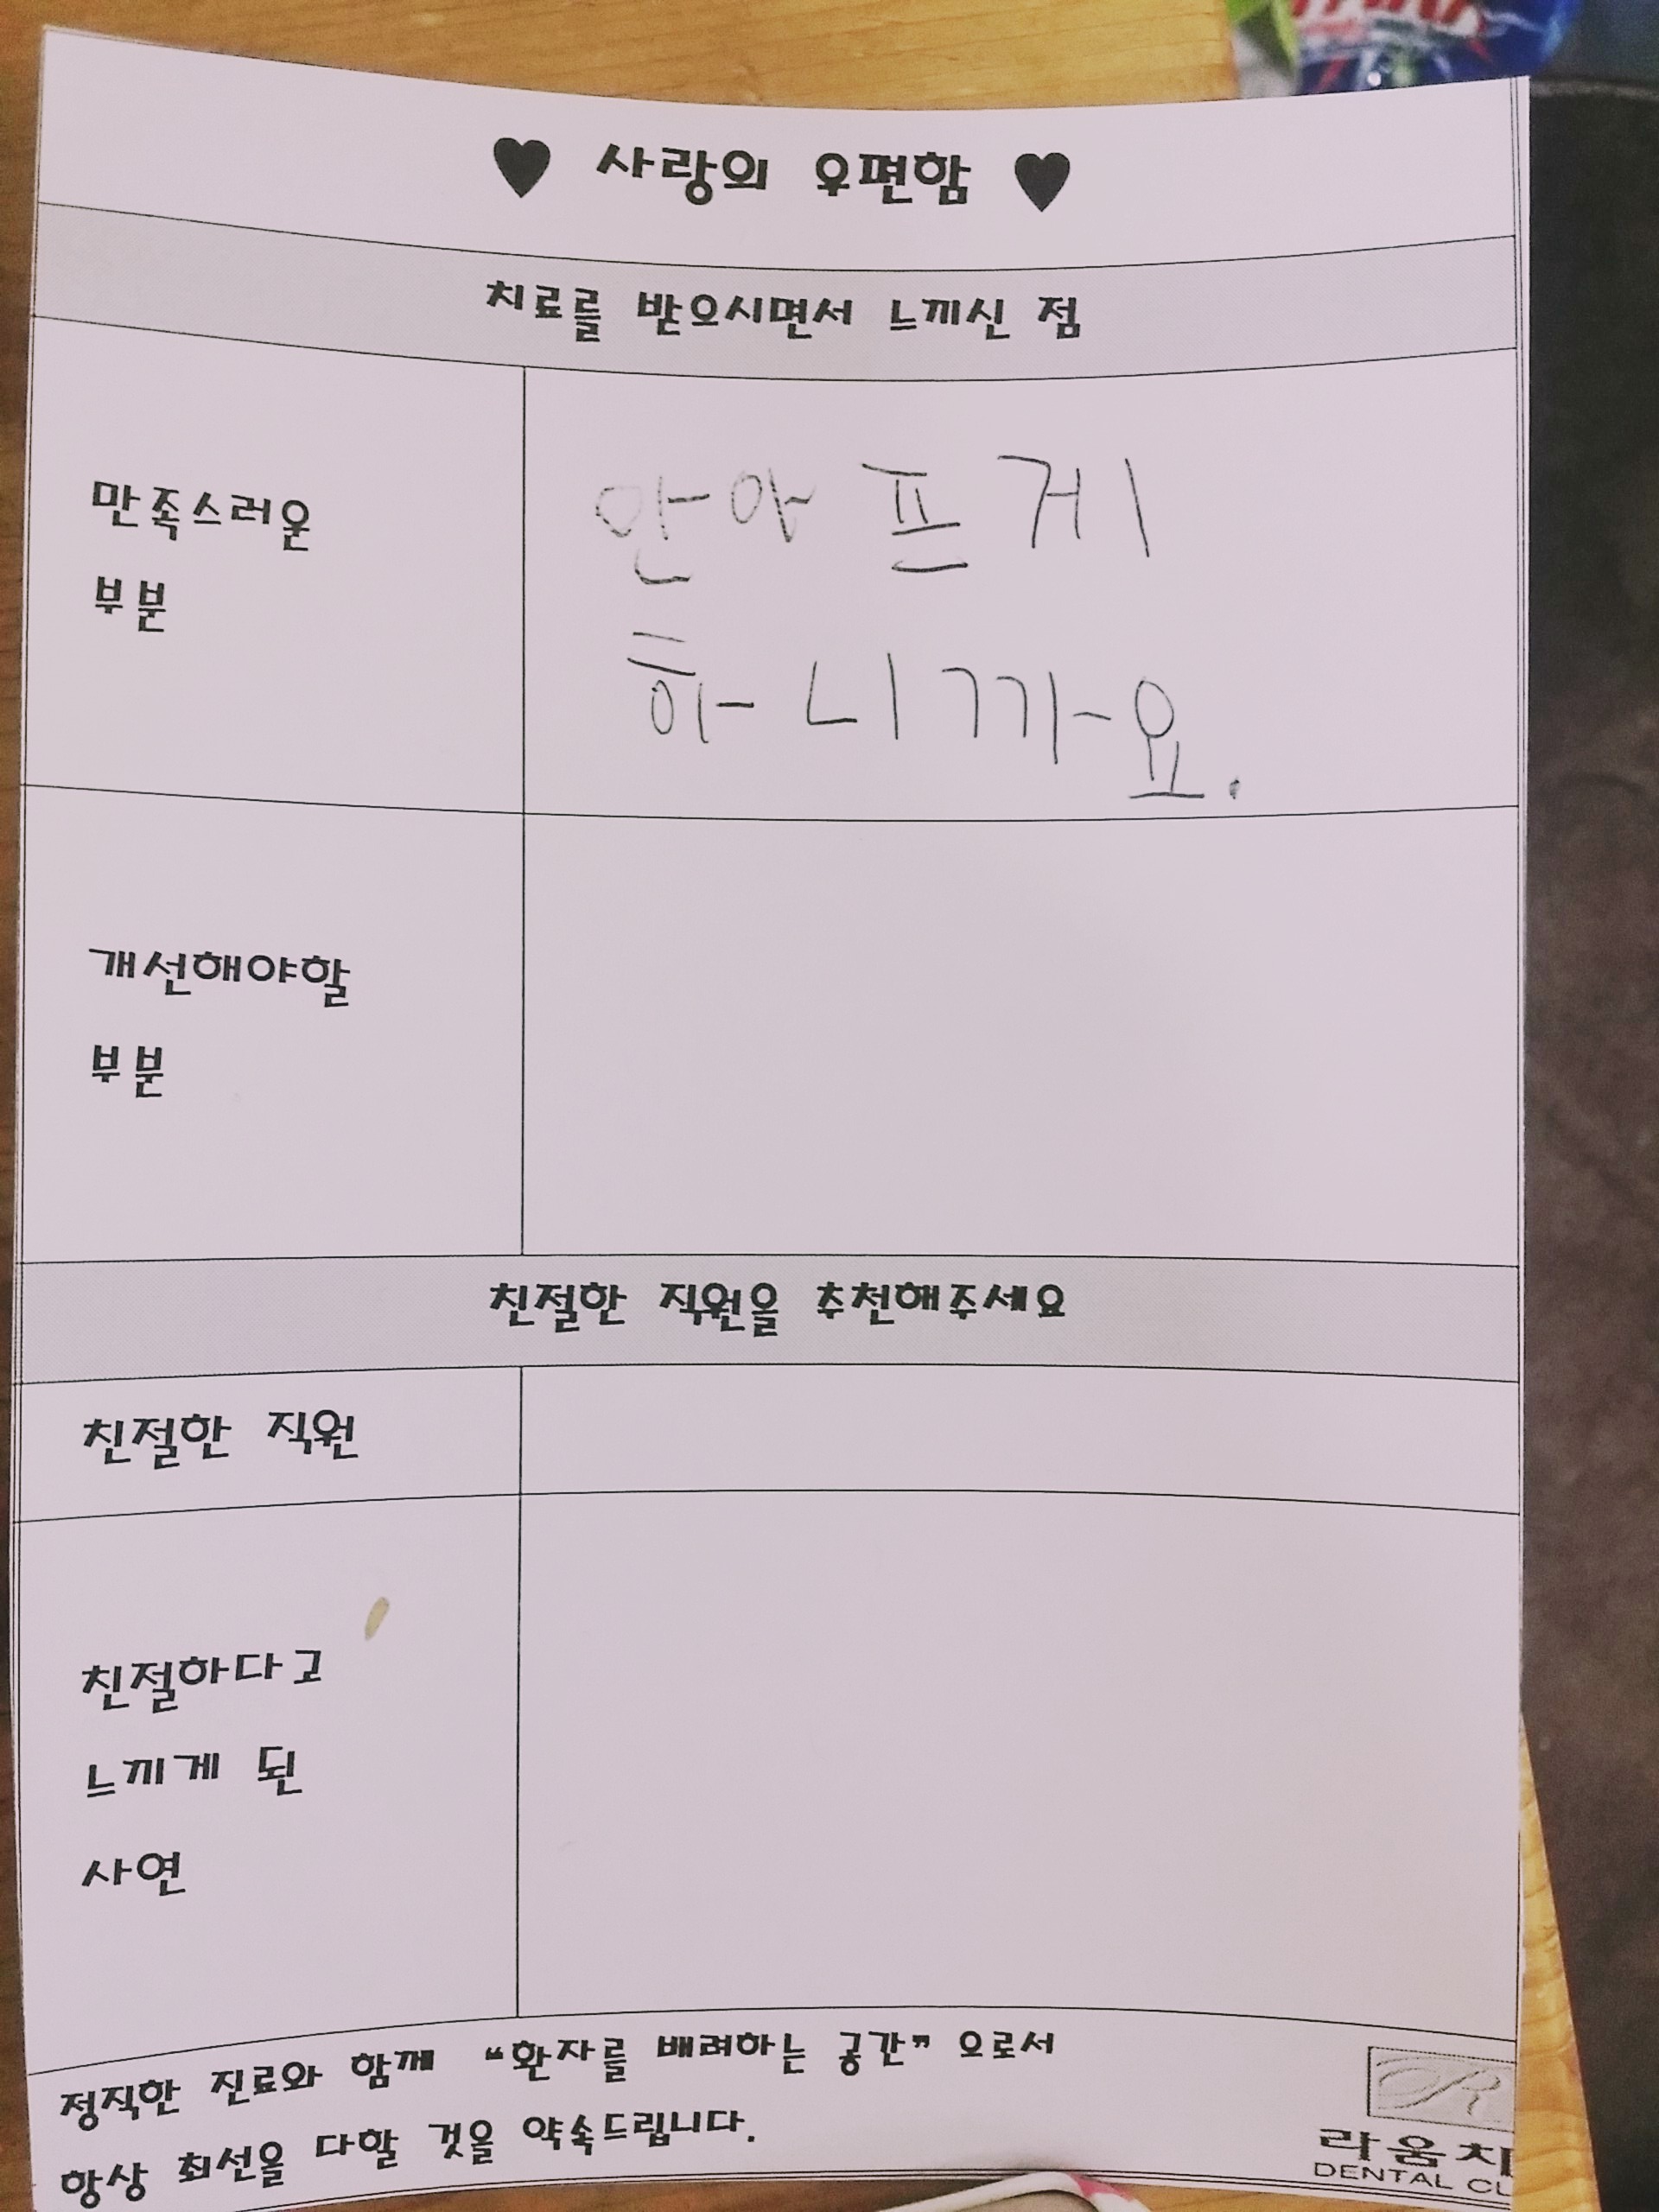 ♥ 사랑의 우편함 ♥
치료를 받으시면서 느끼신 점
만족스러운
부분
안아프게
하니까요.
개선해야할
부분
친절한 직원을 추천해주세요
친절한 직원
친절하다고
느끼게 된
사연
정직한 진료와 함께 “환자를 배려하는 공간” 으로서
항상 최선을 다할 것을 약속드립니다.
R
라움치
DENTAL CL